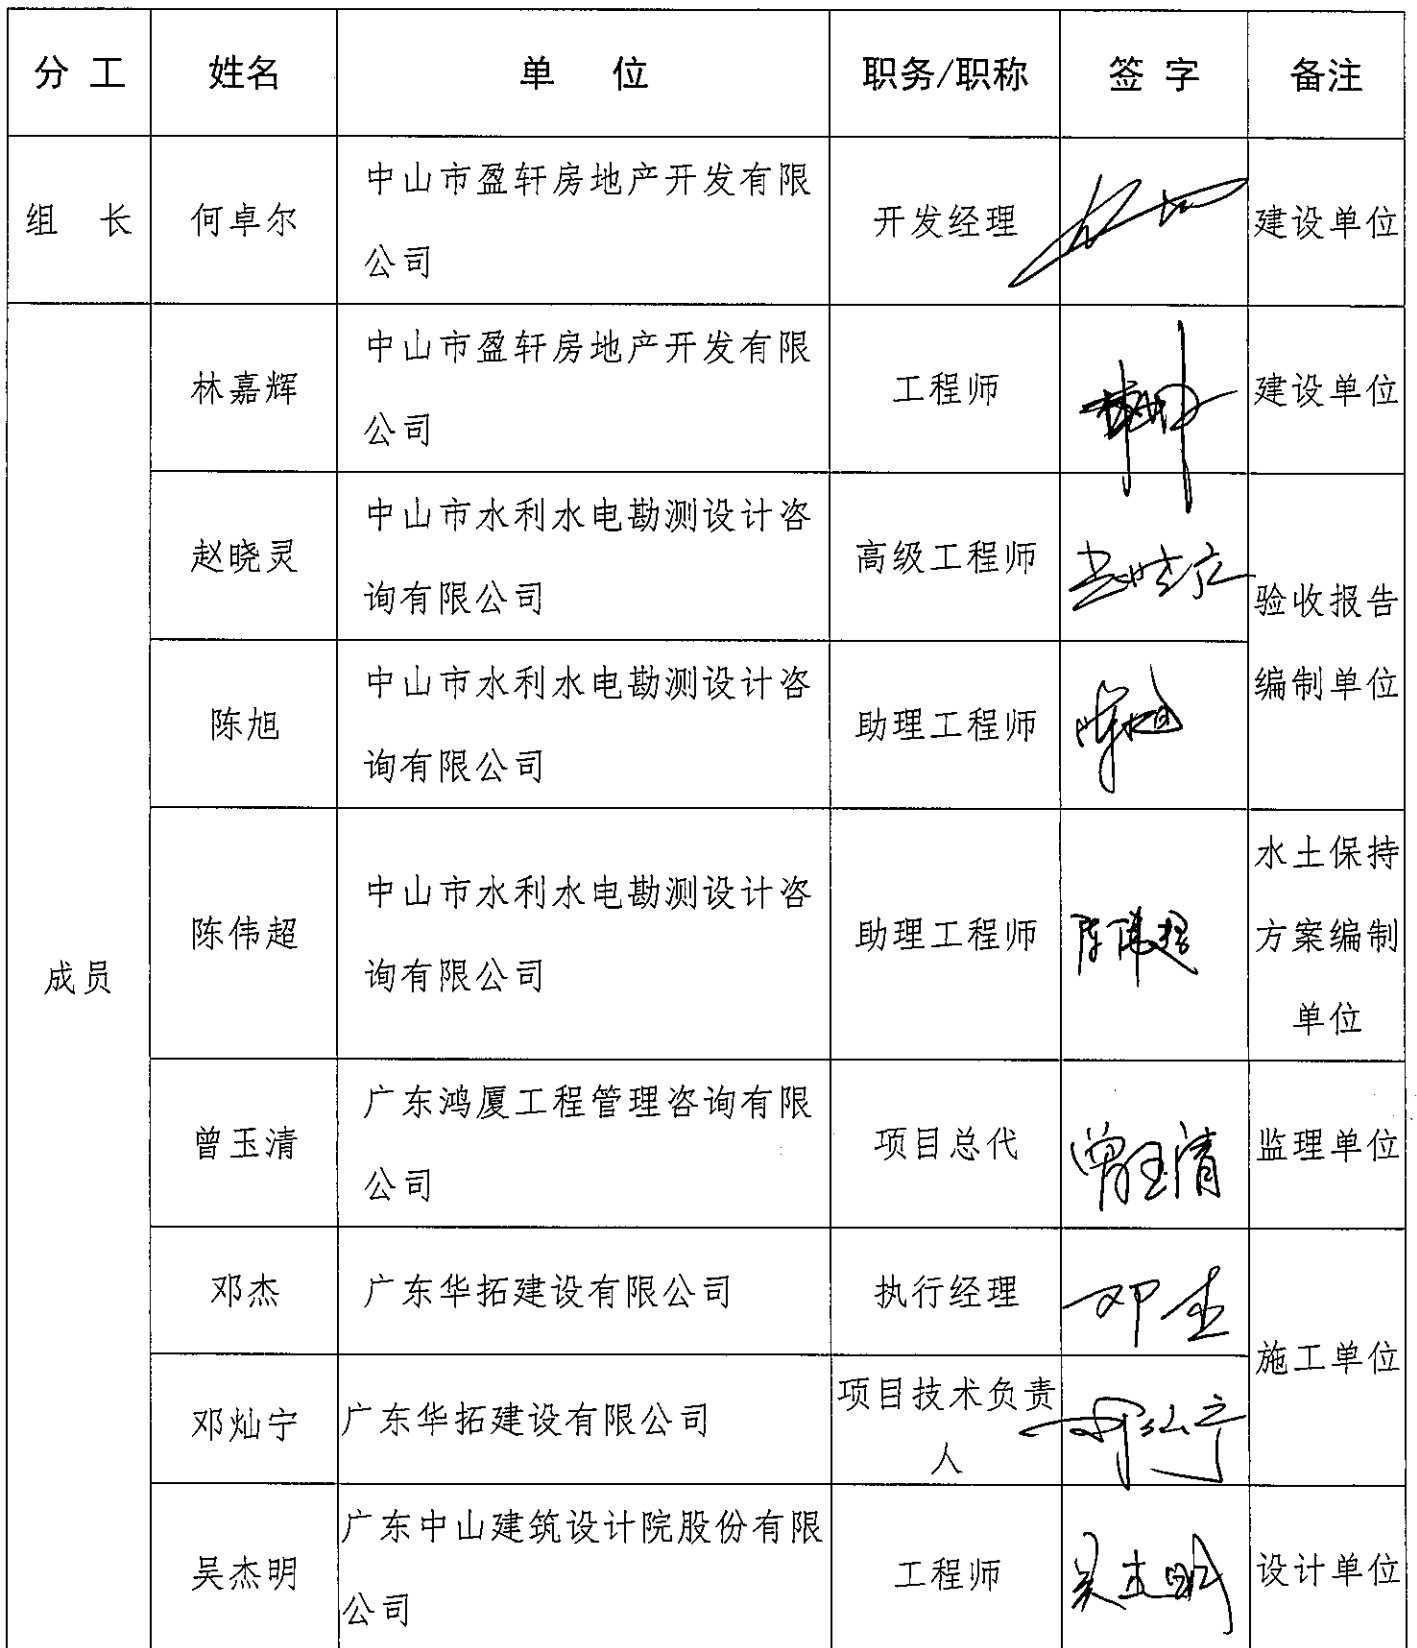 分 工 姓名 单 位 职务/职称 签 字 备注
组 长 何卓尔 中山市盈轩房地产开发有限
公司 开发经理 建设单位
成员
林嘉辉 中山市盈轩房地产开发有限
公司 工程师 建设单位
赵晓灵 中山市水利水电勘测设计咨
询有限公司 高级工程师 赵晓灵
验收报告
编制单位
陈旭 中山市水利水电勘测设计咨
询有限公司 助理工程师 陈旭
陈伟超 中山市水利水电勘测设计咨
询有限公司 助理工程师 陈伟超
水土保持
方案编制
单位
曾玉清 广东鸿厦工程管理咨询有限
公司 项目总代 曾玉清 监理单位
邓杰 广东华拓建设有限公司 执行经理 邓杰
施工单位
邓灿宁 广东华拓建设有限公司 项目技术负责
人 邓灿宁
吴杰明 广东中山建筑设计院股份有限
公司 工程师 吴杰明 设计单位